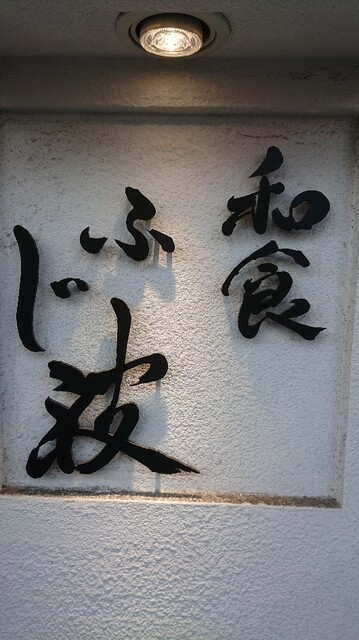 和食
ふじ波